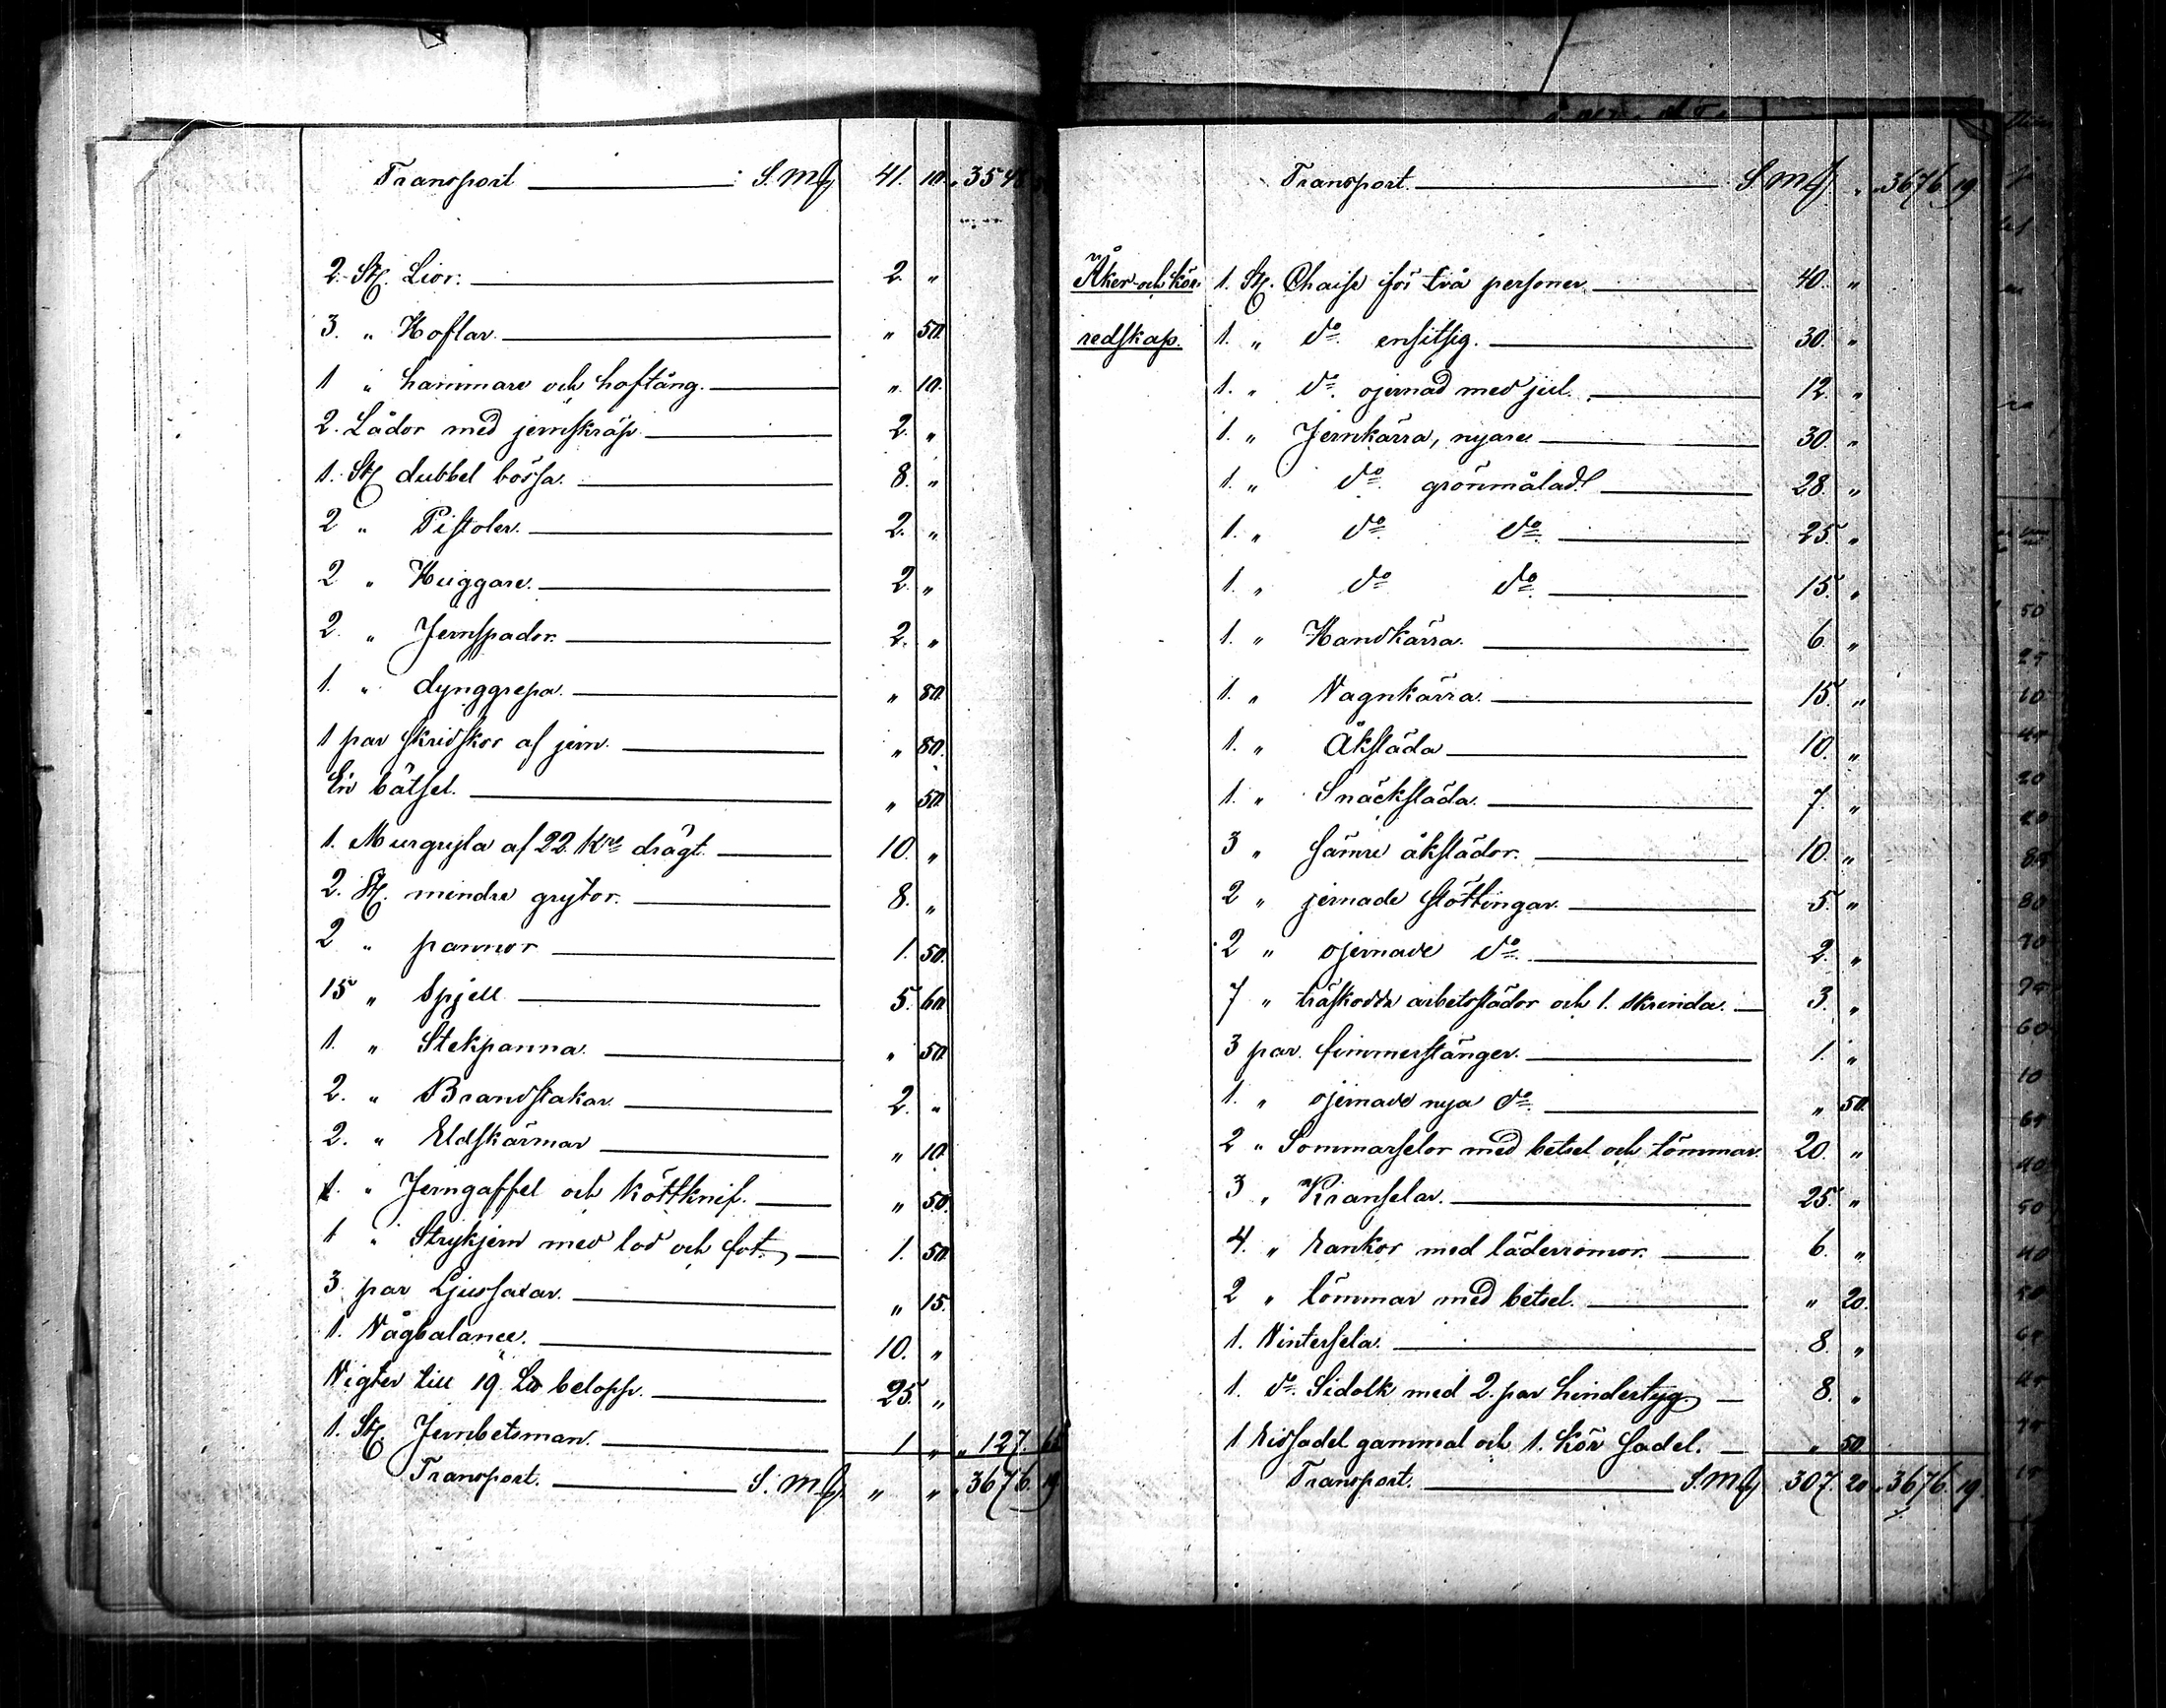 Transport : S. mf 41. 10. „ 3548
2. St. Lior. 2. „
3. „ Hoflar. „ 50.
1 „ hammare och hoftång. „ 10.
2. Lådor med jernskräp. 2. „
1. St. dubbel bössa. 8. „
2 „ Pistoler. 2. „
2 „ Huggare. 2. „
2. „ Jernspador. 2. „
1. „ dynggrepa. „ 80.
1 par skridskor af jern. „ 80.
En båtsel. „ 50.
1. Murgryta af 22 Kr drägt. 10. „
2. St. mindre grytor. 8. „
2 „ pannor 1. 50.
15 „ Spjell 5. 60.
1. „ Stekpanna. „ 50.
2. „ Brandstakar. 2. „
2. „ Eldskärmar „ 10.
1. „ Jerngaffel och köttknif. „ 50.
1 „ Strykjern med lod och fot. 1. 50.
3 par Ljussaxar. „ 15.
1. Vågbalance. 10. „
Vigter till 19. belopp. 25. „
1. St. Jernbetsman. 1. „ „ 127.
Transport. S. mf „ „ „ 3676. 19
Transport. S mf „ „ 3676. 19
Åker- och Kör- 1. St. Chaise för två personer. 40. „
redskap. 1. „ do. ensitsig. 30. „
1. „ do. ojernad med jul. 12. „
1. „ Jernkärra, nyare 30. „
1. „ do. grönmålad 28. „
1. „ do. do. 25. „
1. „ do do. 15. „
1. „ Handkärra. 6. „
1. „ Vagnkärra. 15. „
1. „ Åksläda 10. „
1. „ Snäcksläda. 7. „
3 „ sämre åkslädor. 10. „
2 „ jernade stöttingar. 5. „
2 „ ojernade do. 2. „
7 „ träskodda arbetsslädor och 1. skrinda. 3. „
3 par. fimmerstänger. 1. „
1. „ ojernade nya do. „ 50.
2 „ Sommarselar med betsel och tömmar. 20. „
3 „ Kranselar. 25. „
4. „ Rankor med läderromor. 6. „
2 „ tömmar med betsel. „ 20.
1. Vintersela. 8. „
1. do. Sidolk med 2. par hindertyg. 8. „
1 Ridsadel gammal och 1. Kör sadel. „ 50
Transport. S. mf 307. 20 „ 3676. 19.